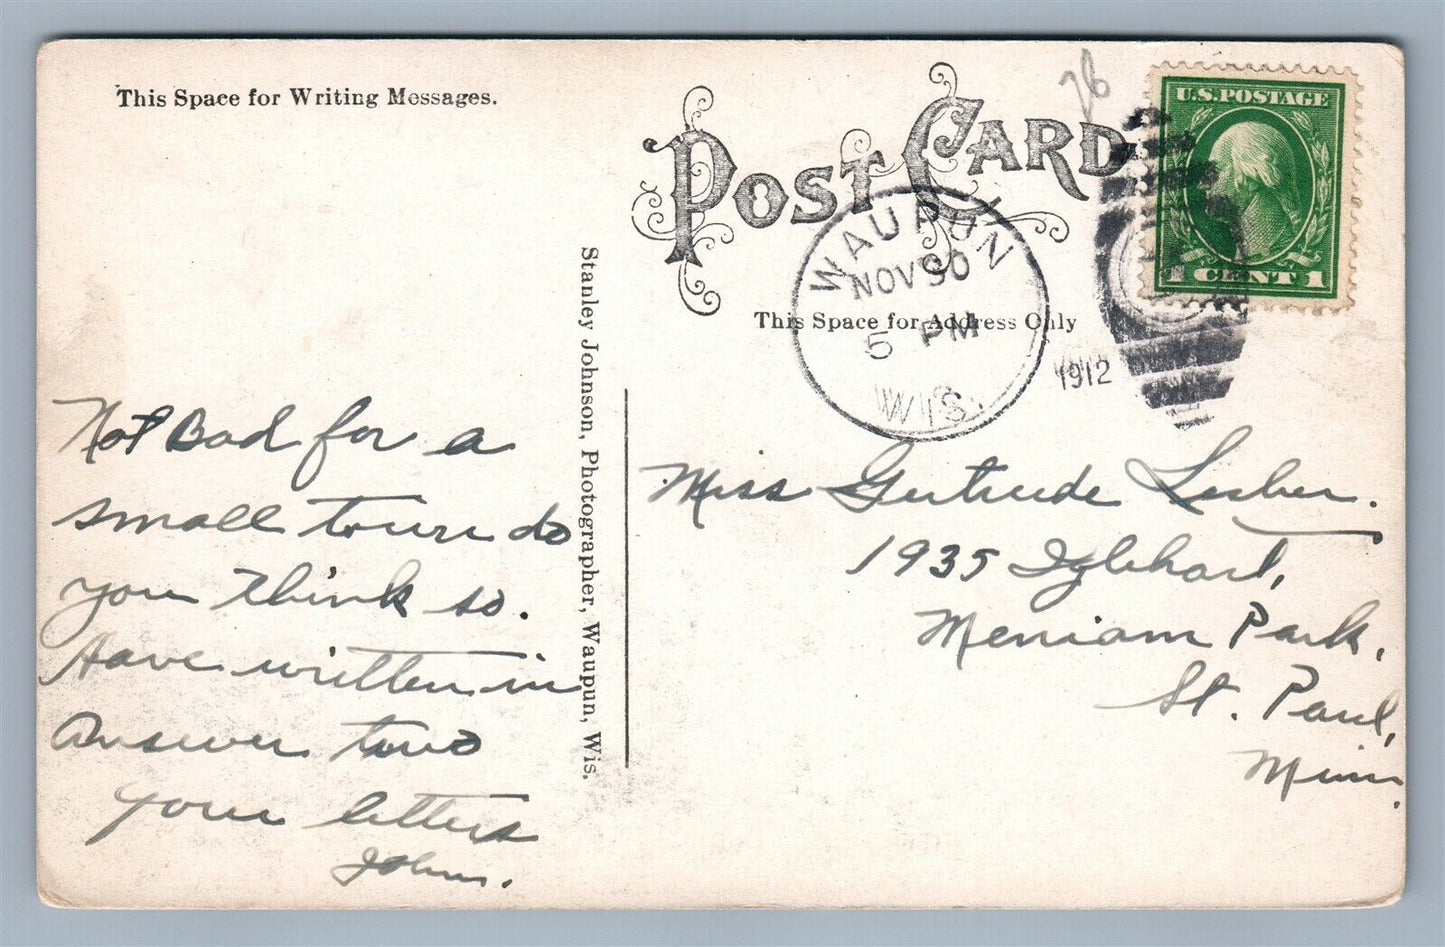 This Space for Writing Messages.
POST CARD
26
U.S. POSTAGE
1 CENT 1
WAUPUN
NOV 30
5 PM
WIS.
1912
This Space for Address Only
Stanley Johnson, Photographer, Waupun, Wis.
Not Bad for a
small town do
you think so.
Have written in
answer two
your letters
John.
Miss Gertrude Lesher.
1935 Iglehart,
Merriam Park,
St. Paul,
Minn.